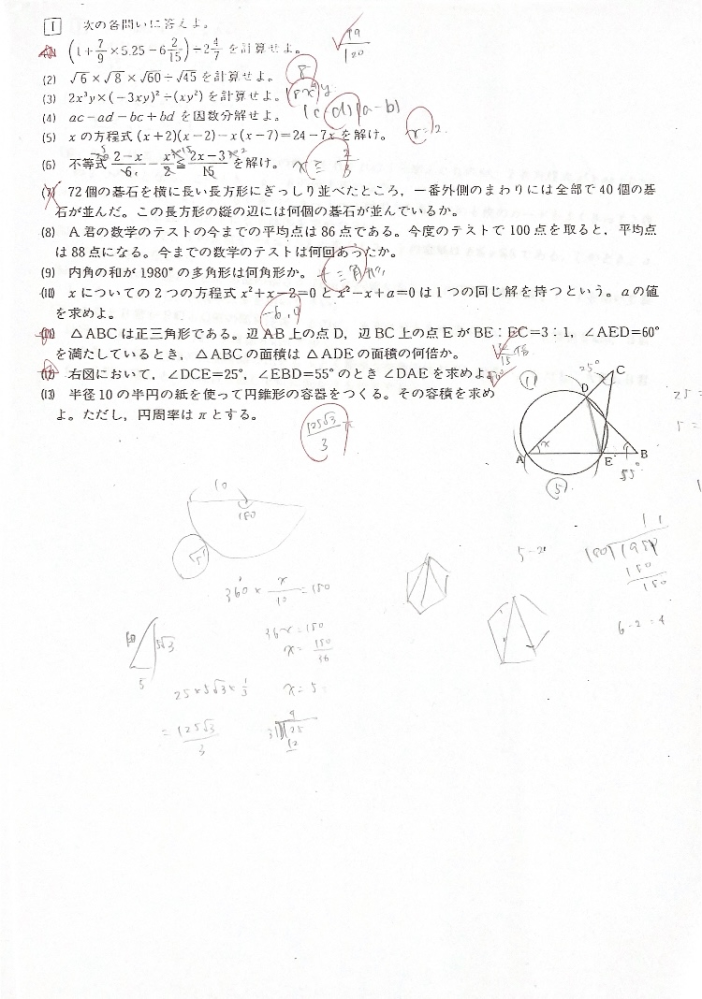 1 次の各問いに答えよ。
(1) (1+7/9×5.25−6 2/15)÷2 4/7 を計算せよ。 19/120
(2) √6×√8×√60÷√45 を計算せよ。 8
(3) 2x³y×(−3xy)²÷(xy²) を計算せよ。 18x⁴y
(4) ac−ad−bc+bd を因数分解せよ。 (c-d)(a-b)
(5) xの方程式 (x+2)(x−2)−x(x−7)=24−7x を解け。 x=2
(6) 不等式 (2−x)/6 − x/2 ≦ (2x−3)/15 を解け。 x≧2/3
(7) 72個の碁石を横に長い長方形にぎっしり並べたところ，一番外側のまわりには全部で40個の碁
石が並んだ。この長方形の縦の辺には何個の碁石が並んでいるか。
(8) A君の数学のテストの今までの平均点は86点である。今度のテストで100点を取ると，平均点
は88点になる。今までの数学のテストは何回あったか。
(9) 内角の和が1980°の多角形は何角形か。 十三角形
(10) xについての2つの方程式 x²+x−2=0 と x²−x+a=0 は1つの同じ解を持つという。aの値
を求めよ。 -6,0
(11) △ABCは正三角形である。辺AB上の点D，辺BC上の点Eが BE：EC=3：1，∠AED=60°
を満たしているとき，△ABCの面積は△ADEの面積の何倍か。
(12) 右図において，∠DCE=25°，∠EBD=55°のとき∠DAEを求めよ。
(13) 半径10の半円の紙を使って円錐形の容器をつくる。その容積を求め
よ。ただし，円周率はπとする。
125√3/3
25°
C
D
A x E B
55°
① ⑤
10
180
5
360×x/10=180
36x=180
x=180/36
x=5
10 5√3
5
25×5√3×1/3
=125√3/3
5-2
6-2=4